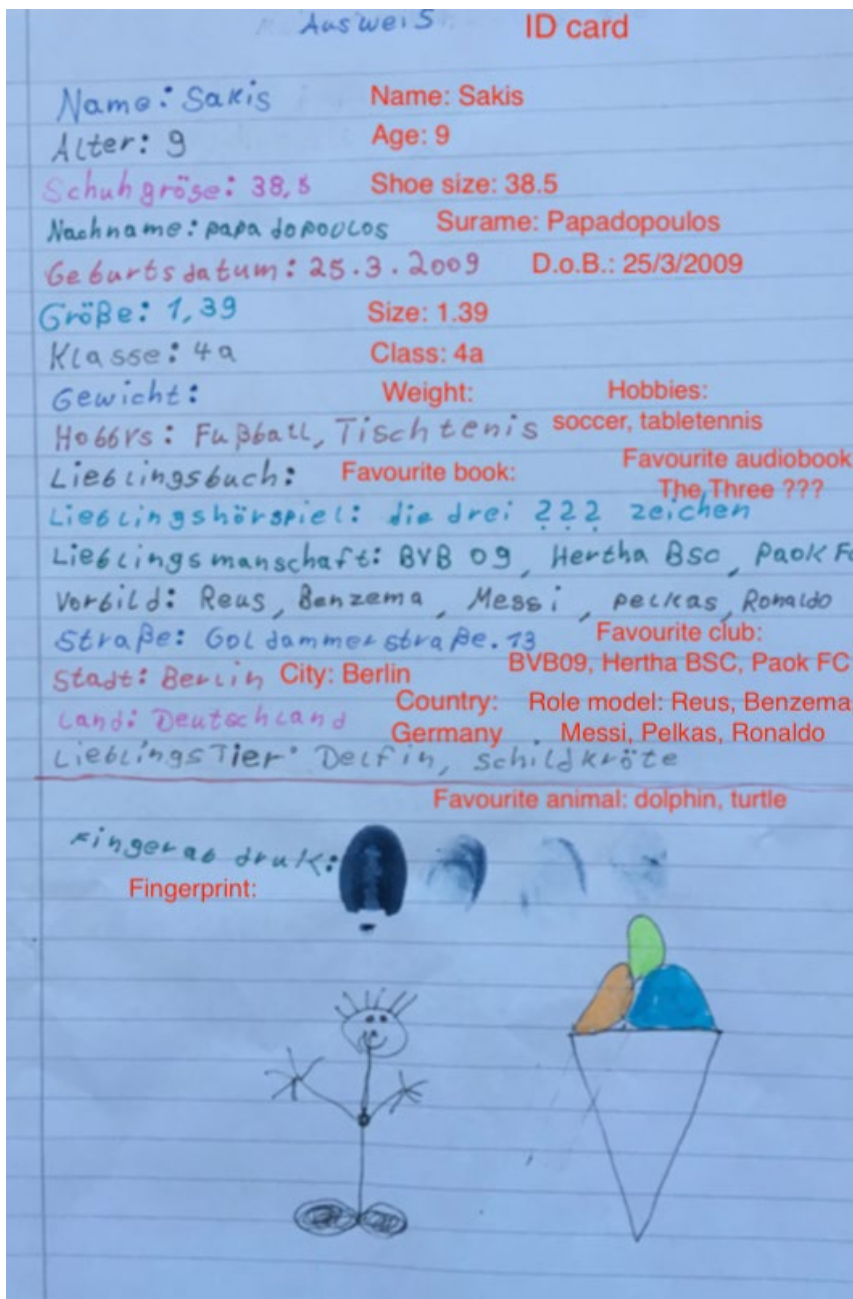 Ausweis ID card
Name: Sakis Name: Sakis
Alter: 9 Age: 9
Schuhgröße: 38,5 Shoe size: 38.5
Nachname: papadopoulos Surame: Papadopoulos
Geburtsdatum: 25.3.2009 D.o.B.: 25/3/2009
Größe: 1,39 Size: 1.39
Klasse: 4a Class: 4a
Gewicht: Weight: Hobbies:
Hobbys: Fußball, Tischtenis soccer, tabletennis
Lieblingsbuch: Favourite book: Favourite audiobook
The Three ???
Lieblingshörspiel: die drei ??? zeichen
Lieblingsmanschaft: BVB 09, Hertha BSC, Paok Fc
Vorbild: Reus, Benzema, Messi, pelkas, Ronaldo
Straße: Goldammerstraße.13 Favourite club:
BVB09, Hertha BSC, Paok FC
Stadt: Berlin City: Berlin
Land: Deutschland Country: Germany
Role model: Reus, Benzema
Messi, Pelkas, Ronaldo
LieblingsTier: Delfin, schildkröte
Favourite animal: dolphin, turtle
Fingerabdruk:
Fingerprint: